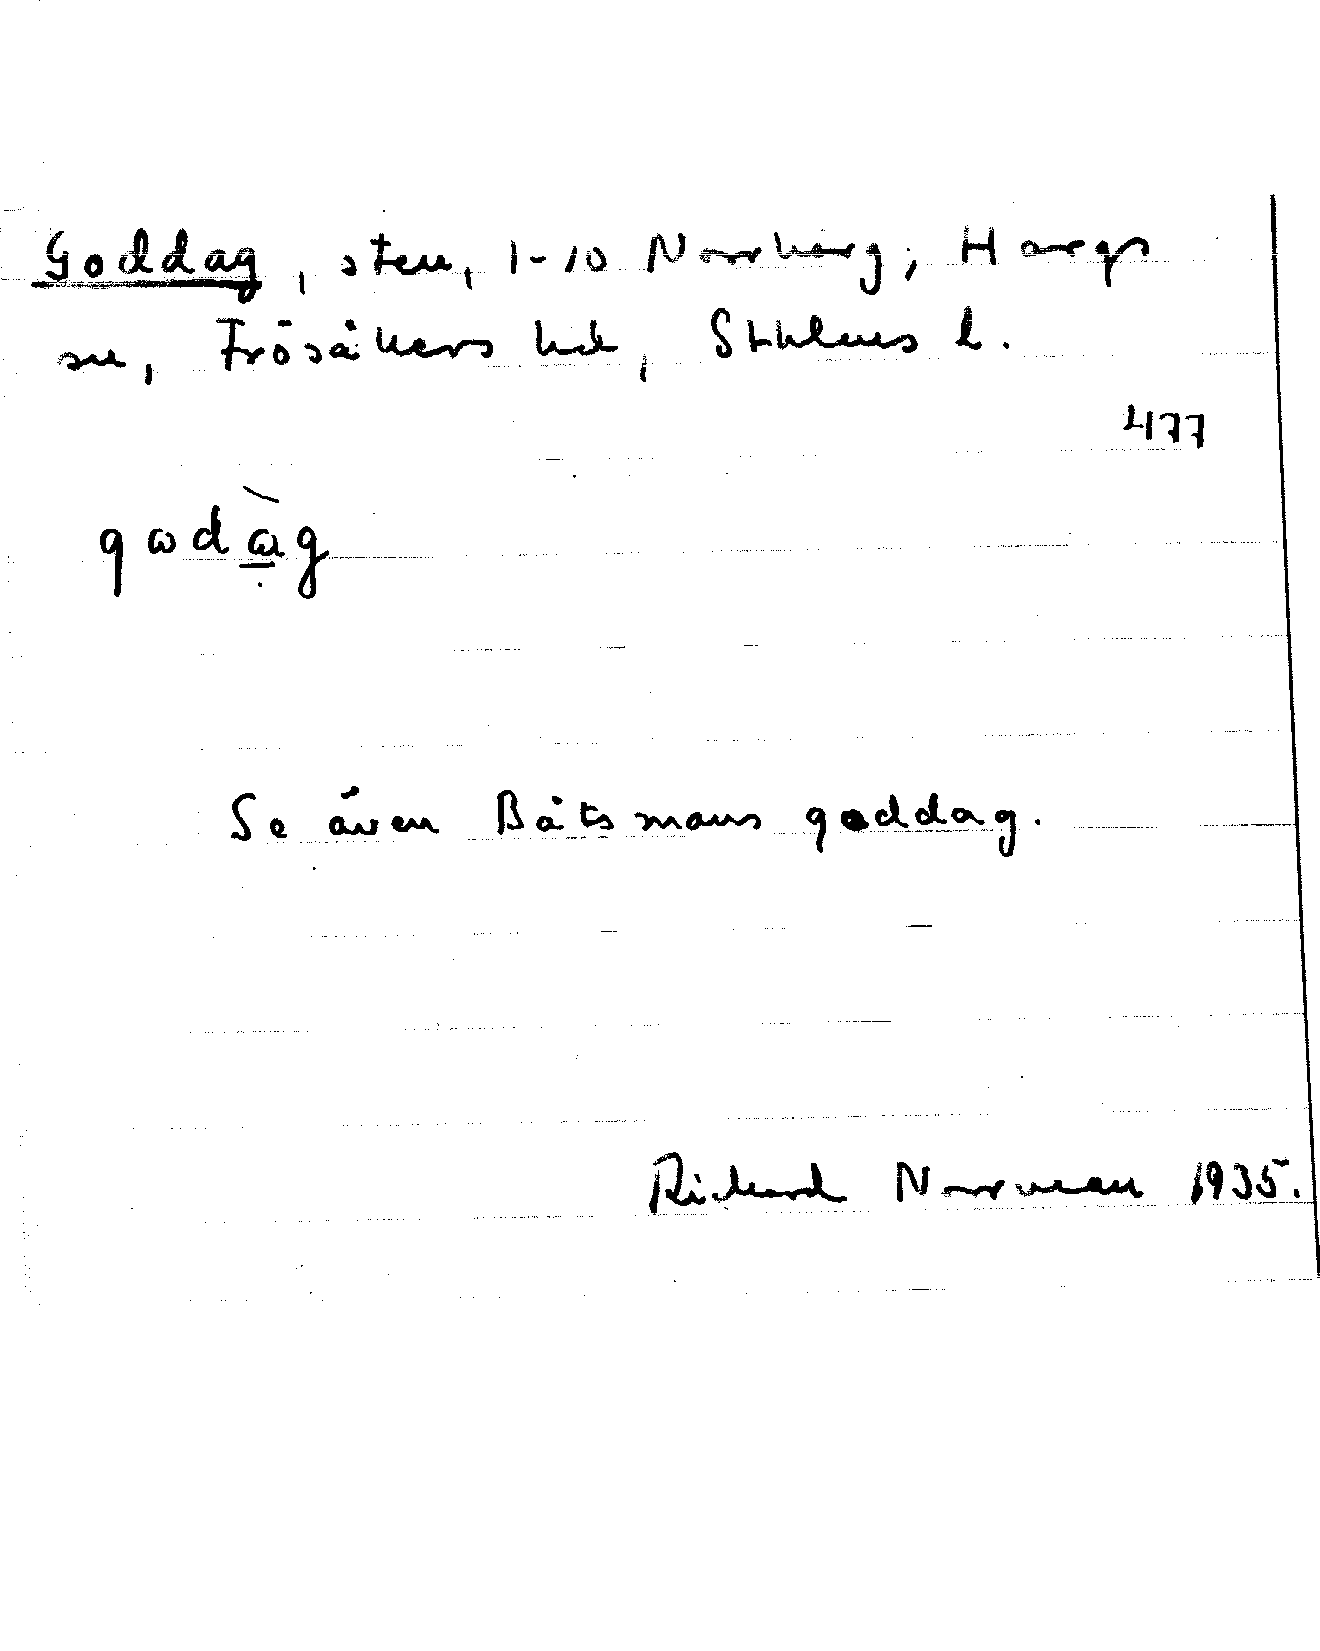 Goddag, sten, 1-10 Norrberg, Hargs
sn, Frösåkers hd, Sthlms l.
477
gωdàg
Se även Båtsmans goddag.
Richard Norrman 1935.